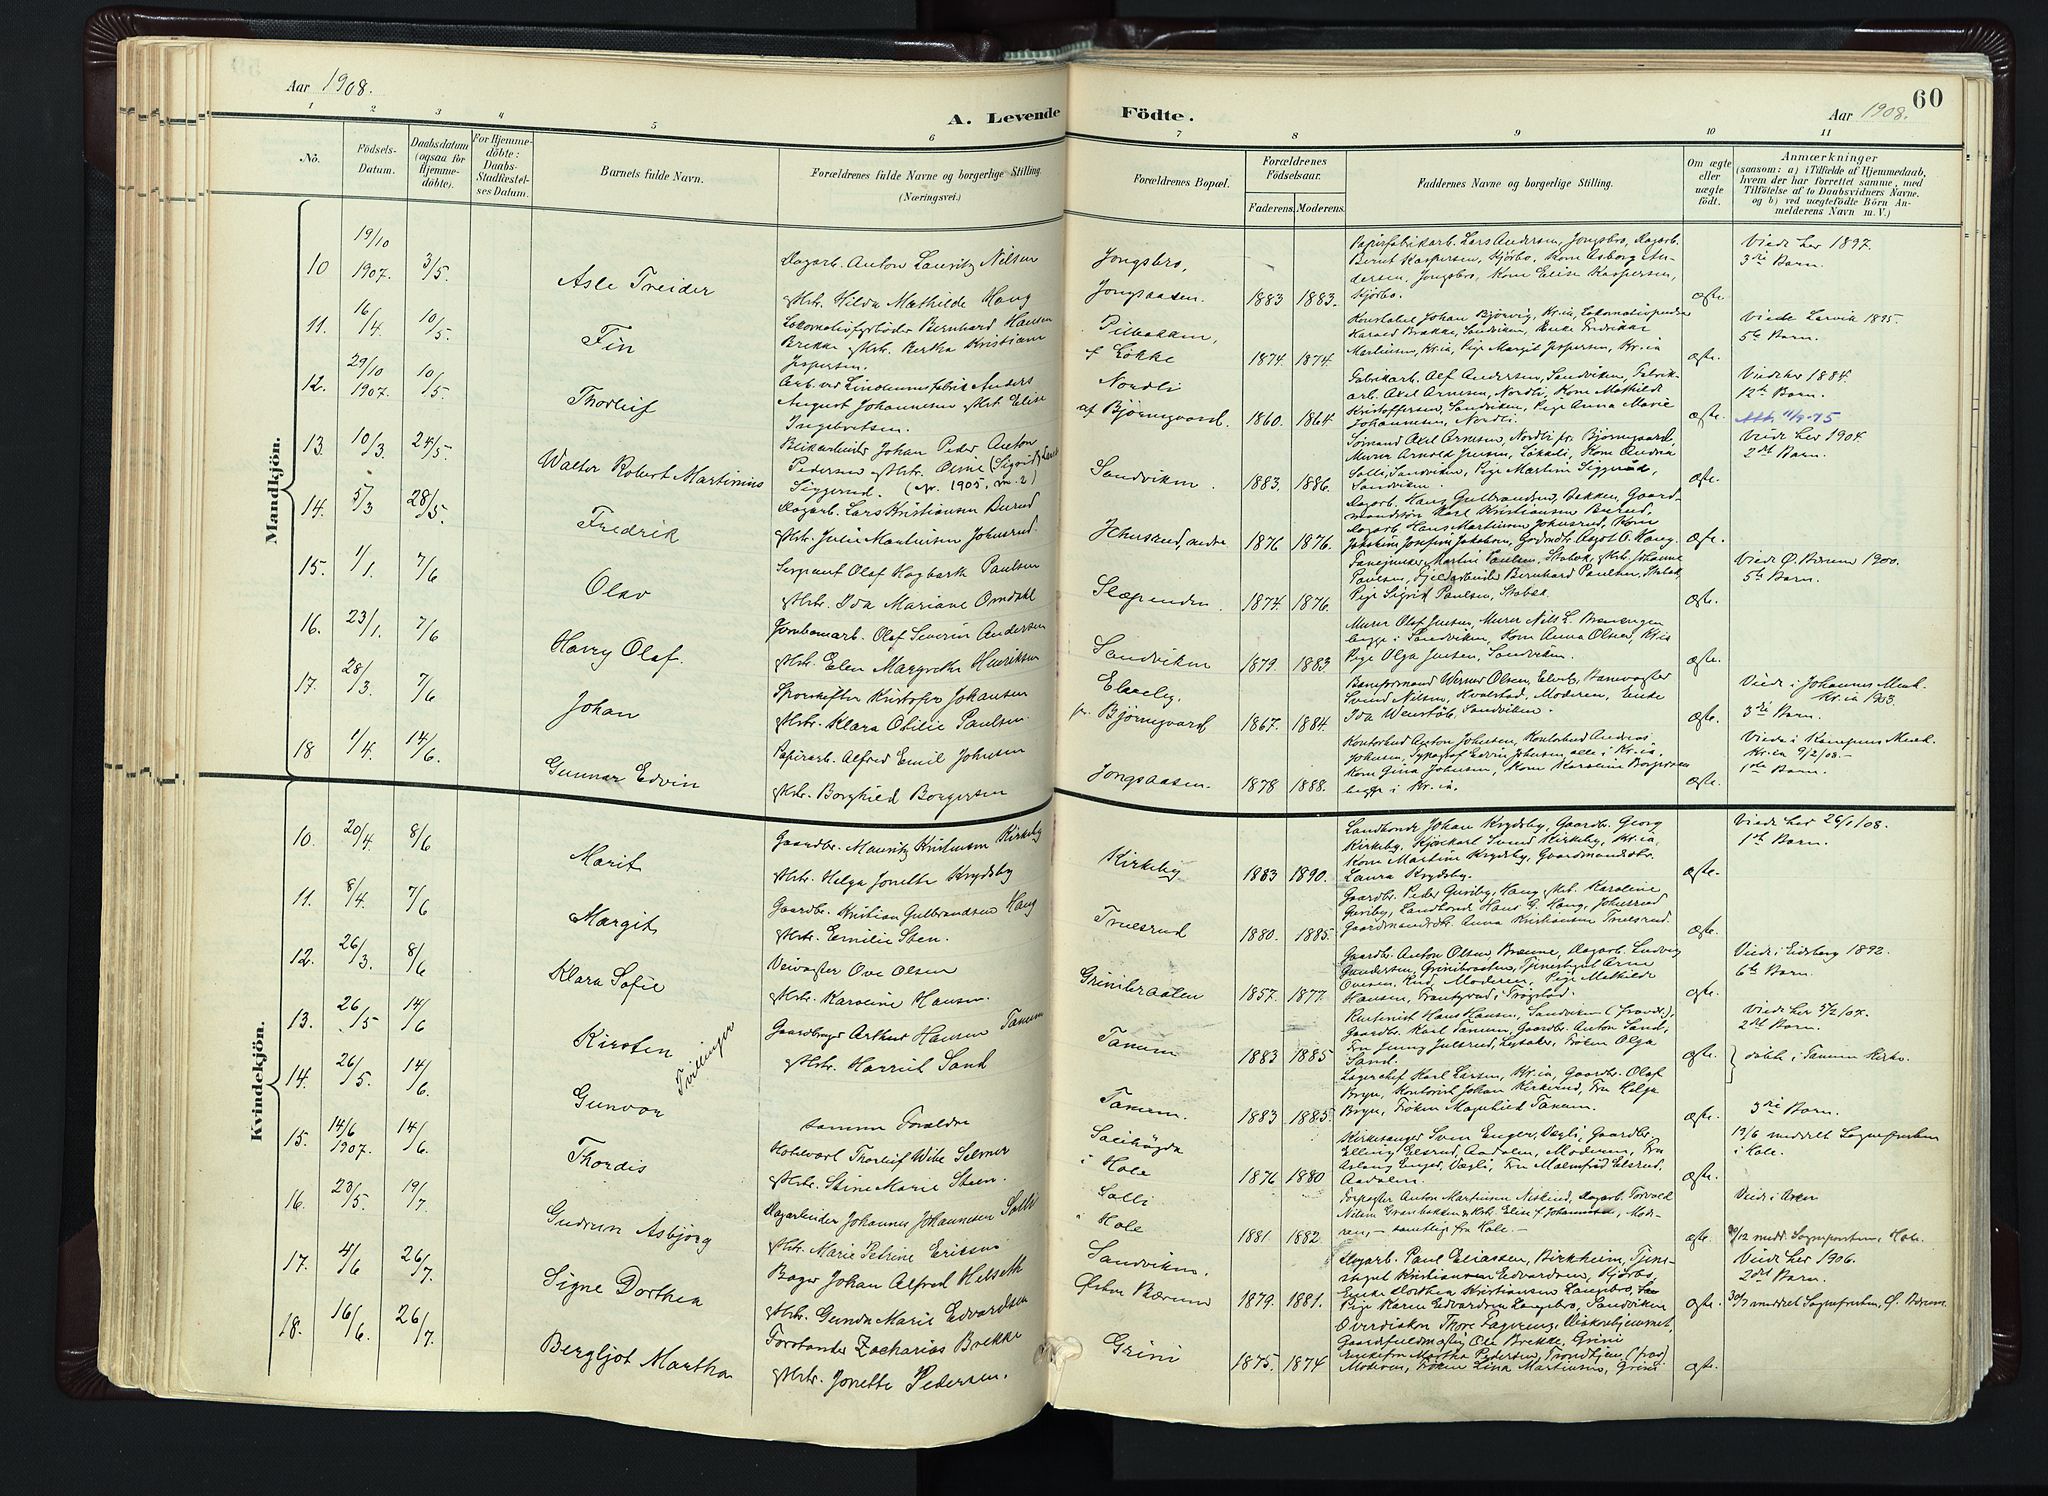 Aar 1908.
A. Levende Födte.
Aar 1908.
60
1 2 3 4 5 6 7 8 9 10 11
Nö.
Födsels-Datum.
Daabsdatum (ogsaa for Hjemme-döbte).
For Hjemme-döbte: Daabs-Stadfæstel-ses Datum.
Barnets fulde Navn.
Forældrenes fulde Navne og borgerlige Stilling. (Næringsvei.)
Forældrenes Bopæl.
Forældrenes Födselsaar.
Faderens. Moderens.
Faddernes Navne og borgerlige Stilling.
Om ægte eller uægte födt.
Anmærkninger
(saasom: a) i Tilfælde af Hjemmedaab, hvem der har forrettet samme, med Tilföielse af to Daabsvidners Navne, og b) ved uægtefödte Börn An-melderens Navn m. V.)
Mandkjön.
10 19/10 1907. 3/5 Asle Treider
Dagarb. Anton Lauritz Nilsen
Hilda Mathilde Haug
Jongsbro, Jongsaasen. 1883 1883.
Papirfabrikarb. Lars Andersen, Jongsbro, Dagarb.
Bernt Kaspersen, Kjörbo, Kone Asborg An-
dersen, Jongsbro, Kone Elise Kaspersen,
Kjörbo.
ægte
Viede her 1897.
3die Barn.
11. 16/4 10/5. Fin
Lokomotivfyrböder Bernhard Hansen
Brekke Bertha Kristiane
Jespersen.
Løkke 1874 1874.
Konstabel Johan Bjørvig, Kr.ia, Lokomotivpudser
Harald Brække, Sandviken, Enke Fredrikke
Martinsen, Kr.ia, Pige Margit Jespersen, Kr.ia
ægte.
Viede Larvik 1895.
5te Barn.
12. 29/10 1907. 10/5. Thorleif
Arb. ved Linoleumsfabrik Anders
August Johannesen Elise
Ingebretsen.
Nordli af Björnegaard. 1860. 1864.
Fabrikarb. Alf Andersen, Sandviken, Fabrik-
arb. Axel Arnesen, Nordli, Kone Mathilde
Kristoffersen, Sandviken, Pige Anna Marie
Johannesen, Nordli.
ægte.
Viede her 1884.
12te Barn.
13. 10/3. 24/5. Walter Robert Martinius
Johan Peder Anton
Pedersen Olme (Sigrid)
Siggerud. (Nr. 1905, m. 2)
Sandviken. 1883. 1886.
Sömand Axel Arnesen, Nordli fr. Björnegaard,
Murer Arnold Jensen, Løkkeli, Kone Andrea
Solli, Sandviken, Pige Martine Siggerud,
Sandviken.
ægte.
Viede her 1904.
2det Barn.
14. 5/3 28/5. Fredrik
Dagarb. Lars Kristiansen Burud
Julie Martinsen Johnsrud.
1876 1876.
Dagarb. Hans Gulbrandsen, Bekken, Gaard-
mandssön Karl Kristiansen Burud,
Dagarb. Hans Martinsen Johnsrud, Kone
ægte.
15. 1/1. 7/6 Olav
Sergeant Olaf Hagbarth Paulsen
Ida Mariane Omdahl
Slæpenden. 1874. 1876.
Martin Paulsen, Stabæk, Johanne
Paulsen, Bernhard Paulsen, Stabæk,
Pige Sigrid Paulsen, Stabæk.
ægte.
Viede Ø. Bærum 1900.
5te Barn.
16. 23/1. 7/6 Harry Olaf.
Jernbanearb. Olaf Severin Andersen
Elen Margrethe Henriksen
Sandviken 1879. 1883.
Murer Olaf Jensen, Murer Nils L. Brenengen
begge i Sandviken, Kone Anna Olsen, Kr.ia
Pige Olga Jensen, Sandviken.
ægte.
17. 28/3. 7/6 Johan
Sporskifter Kristofer Johansen
Klara Otilie Paulsen.
Elvely, fr. Björnegaard 1867. 1884.
Baneformand Werner Olsen, Elvely, Banevogter
Svend Nilsen, Kvalstad, Moderen, Enke
Ida Wenstöb, Sandviken.
ægte.
Viede i Johannes Menh.
Kr.ia 1903.
3die Barn.
18 1/4. 14/6. Gunnar Edvin
Papirarb. Alfred Emil Johnsen
Borghild Borgersen
Jongsaasen. 1878 1888.
Kontorbud Anton Johnsen, Kontorbud Andreas
Johnsen, Typograf Edvin Johnsen, alle i Kr.ia,
Kone Gina Johnsen, Kone Karoline Borgersen
begge i Kr.ia.
ægte.
Viede i Kampens Menh.
Kr.ia 9/2/08.
1ste Barn.
Kvindekjön.
10. 20/4. 8/6 Marit
Gaardbr. Mauritz Kristiansen Kirkeby
Helga Jonette Krydsby
Kirkeby 1883 1890.
Landhandl. Johan Krydsby, Gaardbr. Georg
Kirkeby, Svend Kirkeby, Kr.ia,
Kone Martine Krydsby, Gaardmandsdtr.
Laura Krydsby.
ægte.
Viede her 26/1/08.
1ste Barn.
11. 8/4. 7/6 Margit
Gaardbr. Kristian Gulbrandsen Haug
Emilie Sten.
Truesrud 1880. 1885.
Gaardbr. Peder Guriby, Haug, Karoline
Guriby, Hans G. Haug, Johnsrud
Gaardmandsdtr. Anna Kristiansen Truesrud.
ægte.
12. 26/3. 8/6 Klara Sofie
Veivogter Ove Olsen
Karoline Hansen.
Grinibraaten 1857. 1877.
Gaardbr. Anton Olsen Dagarb. Ludvig
Gundersen, Grinibraaten, Tjenestegut Arne
Ovesen, Rud, Moderen, Pige Mathilde
Hansen, i Trøgstad.
ægte.
Viede i Eidsberg 1892.
6te Barn.
13. 26/5 14/6 Kirsten
Gaardbruger Arthur Hansen Tanum
Harriet Sand
Tanum 1883 1885
Rentenist Hans Hansen, Sandviken (fravd.),
Gaardbr. Karl Tanum, Gaardbr. Anton Sand,
Fru Jenny Julsrud, Lysaker, Frøken Olga
Sand.
ægte.
Viede her 5/2/07.
2det Barn.
Tvillinger
døbte i Tanum Kirke.
14. 26/5. 14/6. Gunvor
samme Foreldre
Tanum. 1883 1885.
Lagerchef Karl Larsen, Kr.ia, Gaardbr. Olaf
Bryn, Kontorist Johan Kirkerud, Fru Helga
Bryn, Frøken Magnhild Tanum.
ægte.
3die Barn.
15. 14/6 1907. 14/6. Thordis
Hotelvært Thorleif Wibe Selmer
Stine Marie Steen.
Sollihögda i Hole 1876 1880
Kirkesanger Sven Enger, Vægli, Gaardbr.
Elling Elsrud, Aadalen, Moderen, Fru
Aslaug Enger, Vægli, Fru Malmfrid Elsrud,
Aadalen.
ægte.
19/6 meddelt Sognepresten
i Hole.
16. 23/5. 19/7. Gudrun Asbjørg
Dagarbeider Johannes Johannesen Solli
Marie Petrine Eriksen
Solli i Hole 1881. 1882.
Forpagter Anton Martinsen Niskind, Dagarb. Torvald
Nilsen Granbakken, Elise Johannesen, Mode-
ren, – samtlige fra Hole. –
ægte.
meddl. Sognepresten, Hole.
17. 4/6 26/7. Signe Dorthea
Bager Johan Alfred Helseth
Gunda Marie Edvardsen
Sandviken. Østre Bærum 1879. 1881.
Dagarb. Paul Eliassen, Birkheim, Tjene-
stegut Kristiansen Edvardsen, Kjörbo,
Enke Dorthea Kristiansen Langebro,
Pige Karen Edvardsen Langebro, Sandviken
ægte.
Viede her 1906.
2det Barn.
30/7 meddelt Sognepresten, Ø. Bærum.
18. 16/6. 26/7. Bergljot Martha
Forstander Zacharias Brekke
Jonette Pedersen.
Grini 1875. 1874
Thore Diskrehjemmet,
Gaardsfuldmægtig Ole Brekke, Grini
Enkefru Martha Pedersen, Trondhjem (frav.)
Moderen, Frøken Lina Martinsen, Grini
ægte.